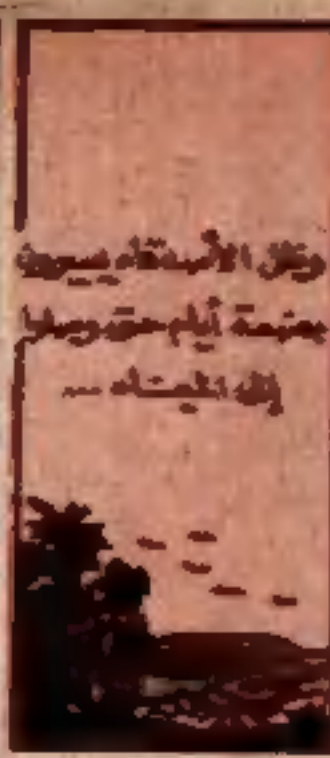 وظل الأسدقاء يسيرون
بضعة أيام حتى وصلوا
إلى الميناء ...